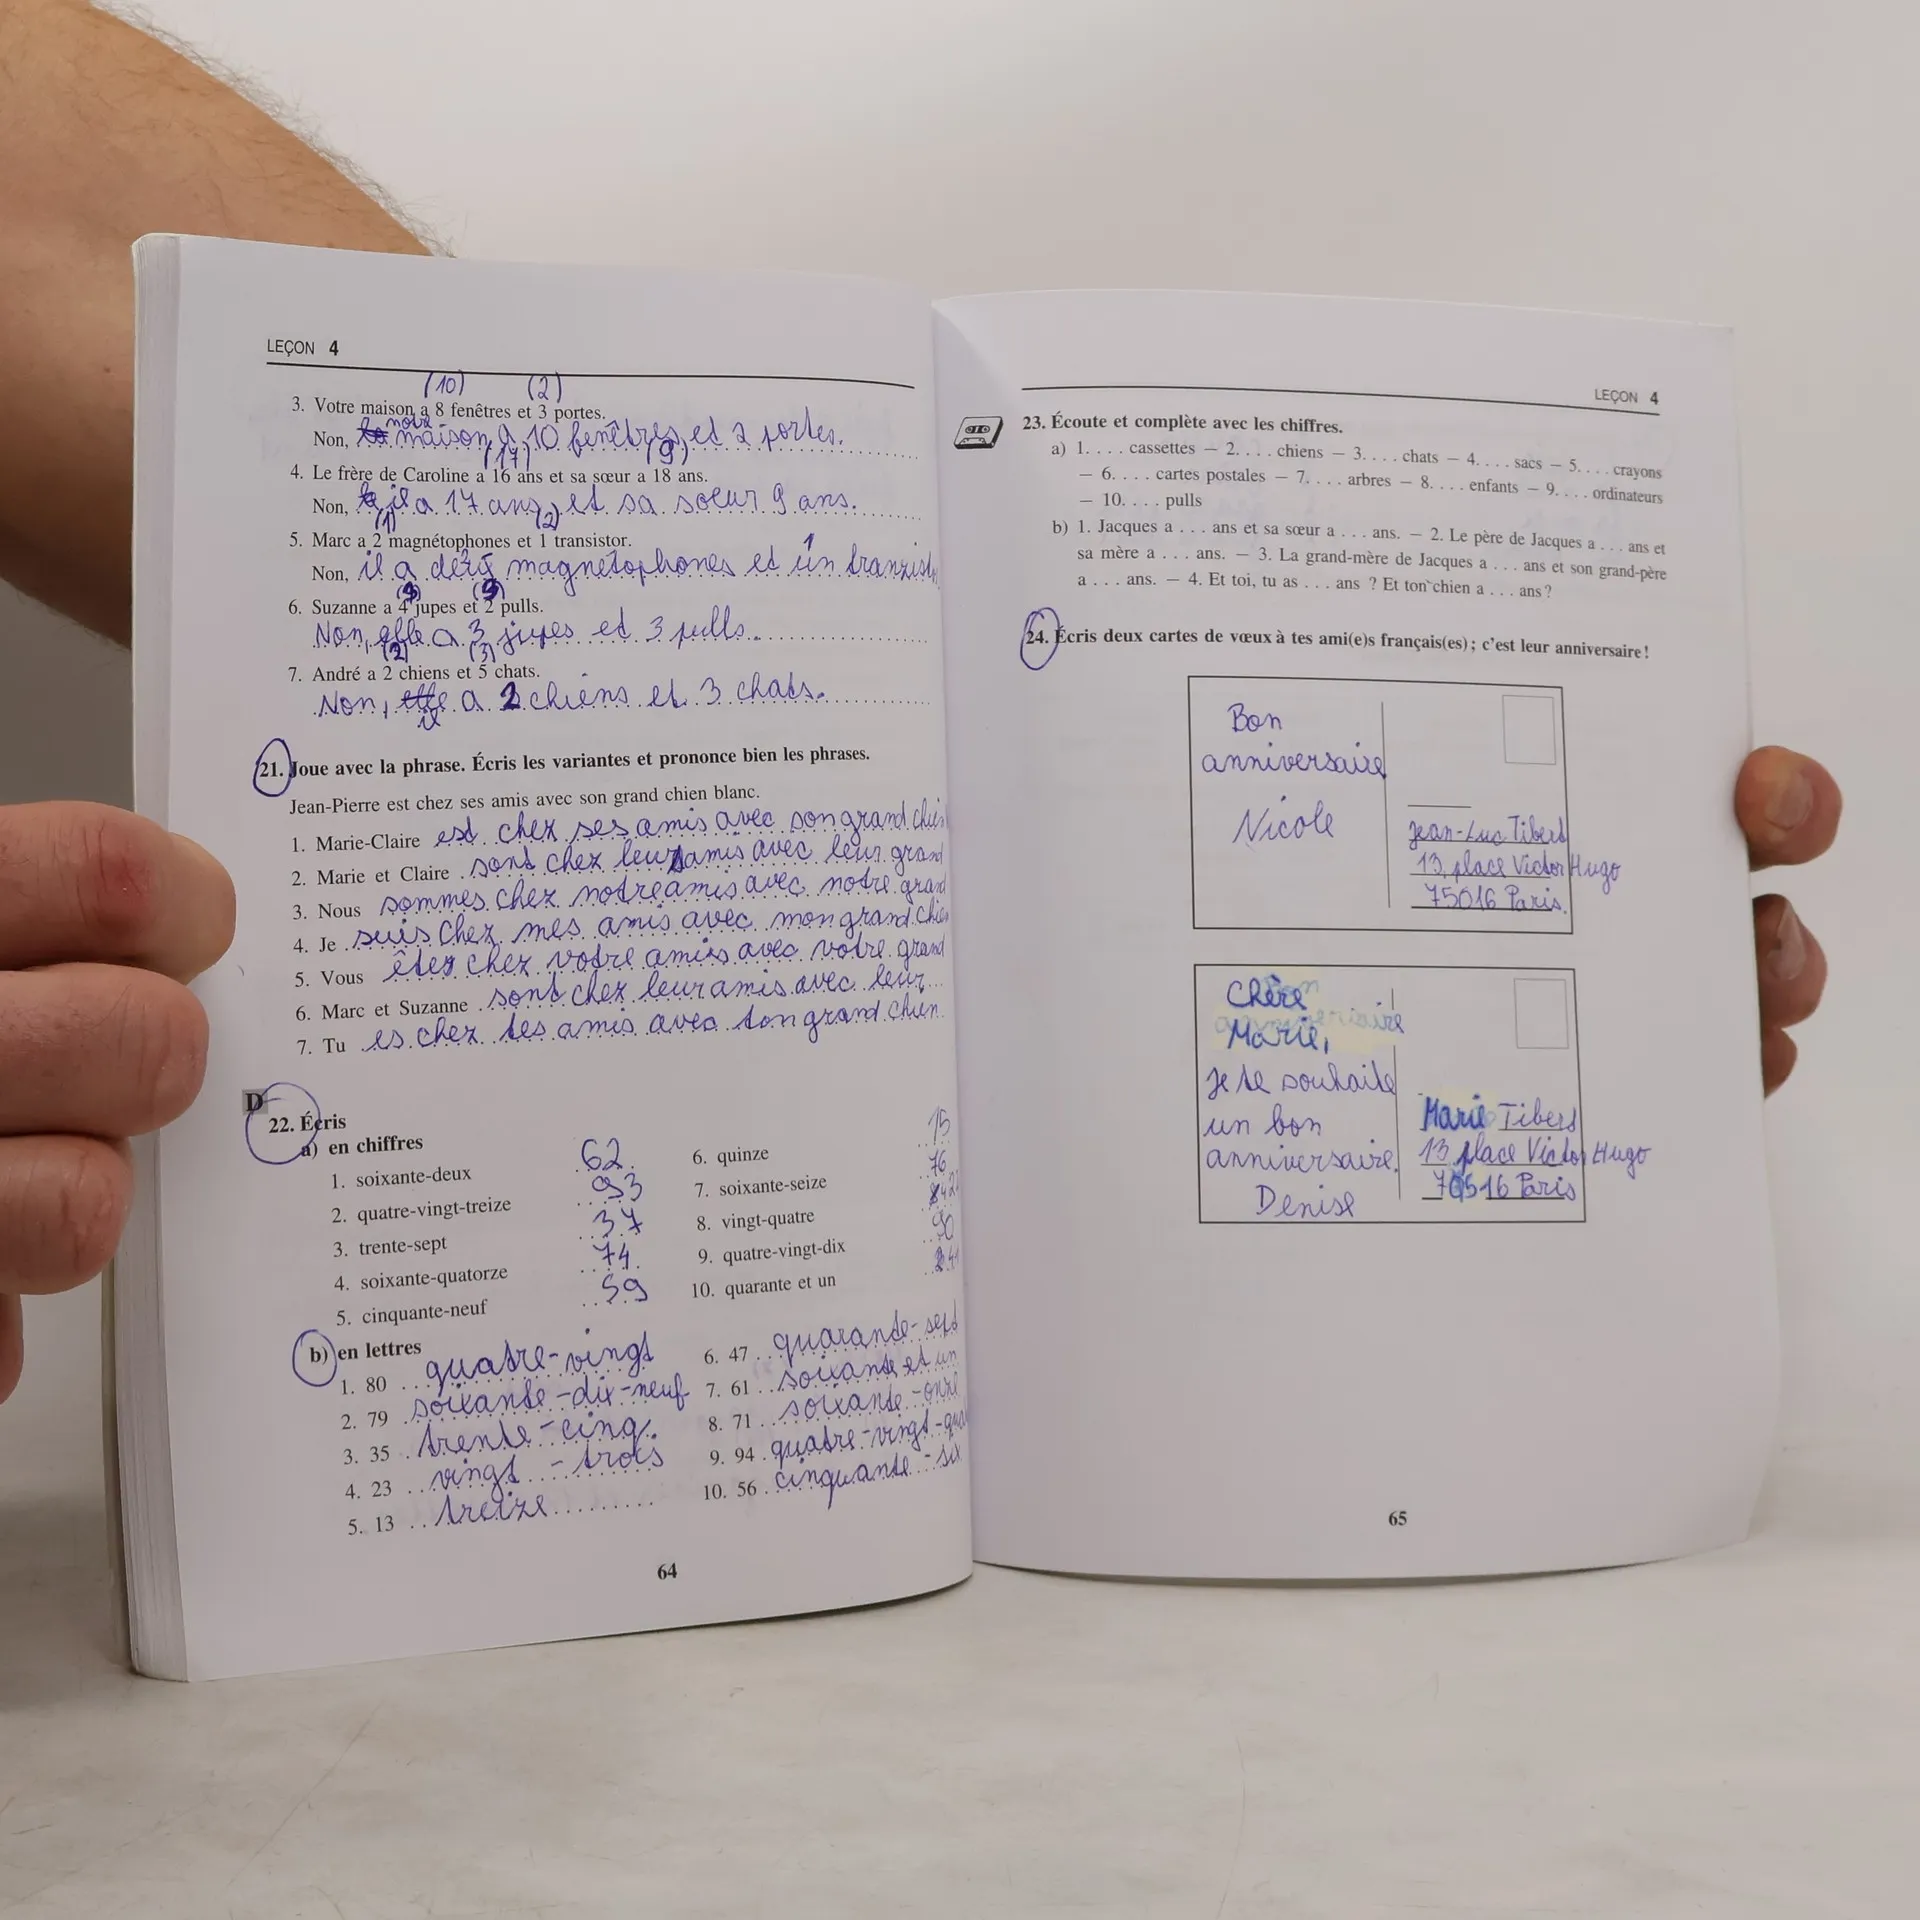 LEÇON 4
(10) (2)
3. Votre maison a 8 fenêtres et 3 portes.
notre
Non, maison a 10 fenêtres et 2 portes.
(17) (9)
4. Le frère de Caroline a 16 ans et sa sœur a 18 ans.
Non, il a 17 ans et sa soeur 9 ans.
(1) (2)
5. Marc a 2 magnétophones et 1 transistor.
1
Non, il a magnetophones et un
(3) (3)
6. Suzanne a 4 jupes et 2 pulls.
Non, elle a 3 jupes et 3 pulls.
(2) (3)
7. André a 2 chiens et 5 chats.
Non, elle a 2 chiens et 3 chats.
il
21. Joue avec la phrase. Écris les variantes et prononce bien les phrases.
Jean-Pierre est chez ses amis avec son grand chien blanc.
1. Marie-Claire est chez ses amis avec son grand chien
2. Marie et Claire sont chez leur amis avec leur grand
3. Nous sommes chez notre amis avec notre grand
4. Je suis chez mes amis avec mon grand chien
5. Vous êtes chez votre amis avec votre grand
6. Marc et Suzanne sont chez leur amis avec leur
7. Tu es chez tes amis avec ton grand chien
D
22. Écris
a) en chiffres
1. soixante-deux 62
2. quatre-vingt-treize 93
3. trente-sept 37
4. soixante-quatorze 74
5. cinquante-neuf 59
6. quinze 15
7. soixante-seize 76
8. vingt-quatre
9. quatre-vingt-dix 90
10. quarante et un 41
b) en lettres
1. 80 quatre-vingt
2. 79 soixante-dix-neuf
3. 35 trente-cinq
4. 23 vingt-trois
5. 13 treize
6. 47 quarante-sept
7. 61 soixante et un
8. 71 soixante-onze
9. 94 quatre-vingt-qua
10. 56 cinquante-six
64
LEÇON 4
23. Écoute et complète avec les chiffres.
a) 1. . . . cassettes – 2. . . . chiens – 3. . . . chats – 4. . . . sacs – 5. . . . crayons
– 6. . . . cartes postales – 7. . . . arbres – 8. . . . enfants – 9. . . . ordinateurs
– 10. . . . pulls
b) 1. Jacques a . . . ans et sa sœur a . . . ans. – 2. Le père de Jacques a . . . ans et
sa mère a . . . ans. – 3. La grand-mère de Jacques a . . . ans et son grand-père
a . . . ans. – 4. Et toi, tu as . . . ans ? Et ton chien a . . . ans ?
24. Écris deux cartes de vœux à tes ami(e)s français(es) ; c'est leur anniversaire !
Bon
anniversaire
Nicole
Jean-Luc Tibert
13, place Victor Hugo
75016 Paris.
Chère
Marie,
Je te souhaite
un bon
anniversaire.
Denise
Marie Tibers
13 place Victor Hugo
Paris
65